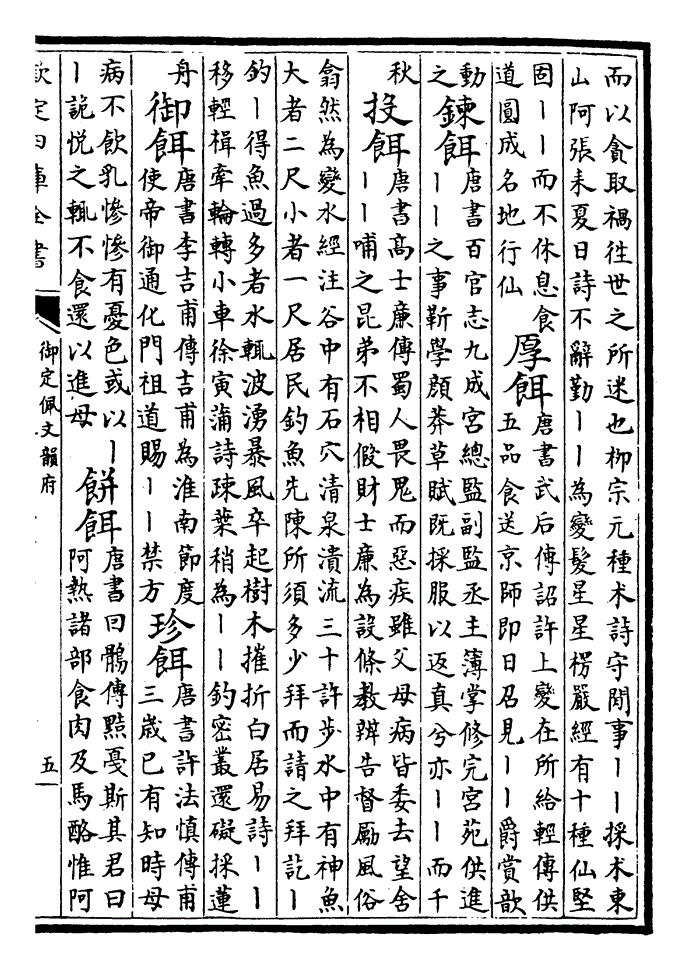 而以貪取禍徃世之所迷也栁宗元種术詩守閑事丨丨採术東
山阿張耒夏日詩不辭勤丨丨為變髮星星楞嚴經有十種仙堅
固丨丨而不休息食
道圓成名地行仙
厚餌
唐書武后傳詔許上變在所給輕傳供
五品食送京師即日召見丨丨爵賞歆
動
之
鍊餌
唐書百官志九成宫總監副監丞主簿掌修完宫苑供進
丨丨之事靳學顔莽草賦既採服以返真兮亦丨丨而千
秋
投餌
唐書髙士廉傳蜀人畏鬼而惡疾雖父母病皆委去望舍
丨丨哺之昆弟不相假財士廉為設條教辨告督勵風俗
翕然為變水經注谷中有石穴清泉潰流三十許步水中有神魚
大者二尺小者一尺居民釣魚先陳所須多少拜而請之拜訖丨
釣丨得魚過多者水輒波湧暴風卒起樹木摧折白居易詩丨丨
移輕楫牽輪轉小車徐寅蒲詩疎葉稍為丨丨釣密叢還礙採蓮
舟
御餌
唐書李吉甫傳吉甫為淮南節度
使帝御通化門祖道賜丨丨禁方
珍餌
唐書許法慎傳甫
三歲已有知時母
病不飲乳惨惨有憂色或以丨
丨詭悦之輒不食還以進母
餅餌
唐書回鶻傳㸃戞斯其君曰
阿熱諸部食肉及馬酪惟阿
欽定四庫全書
御定佩文韻府
五